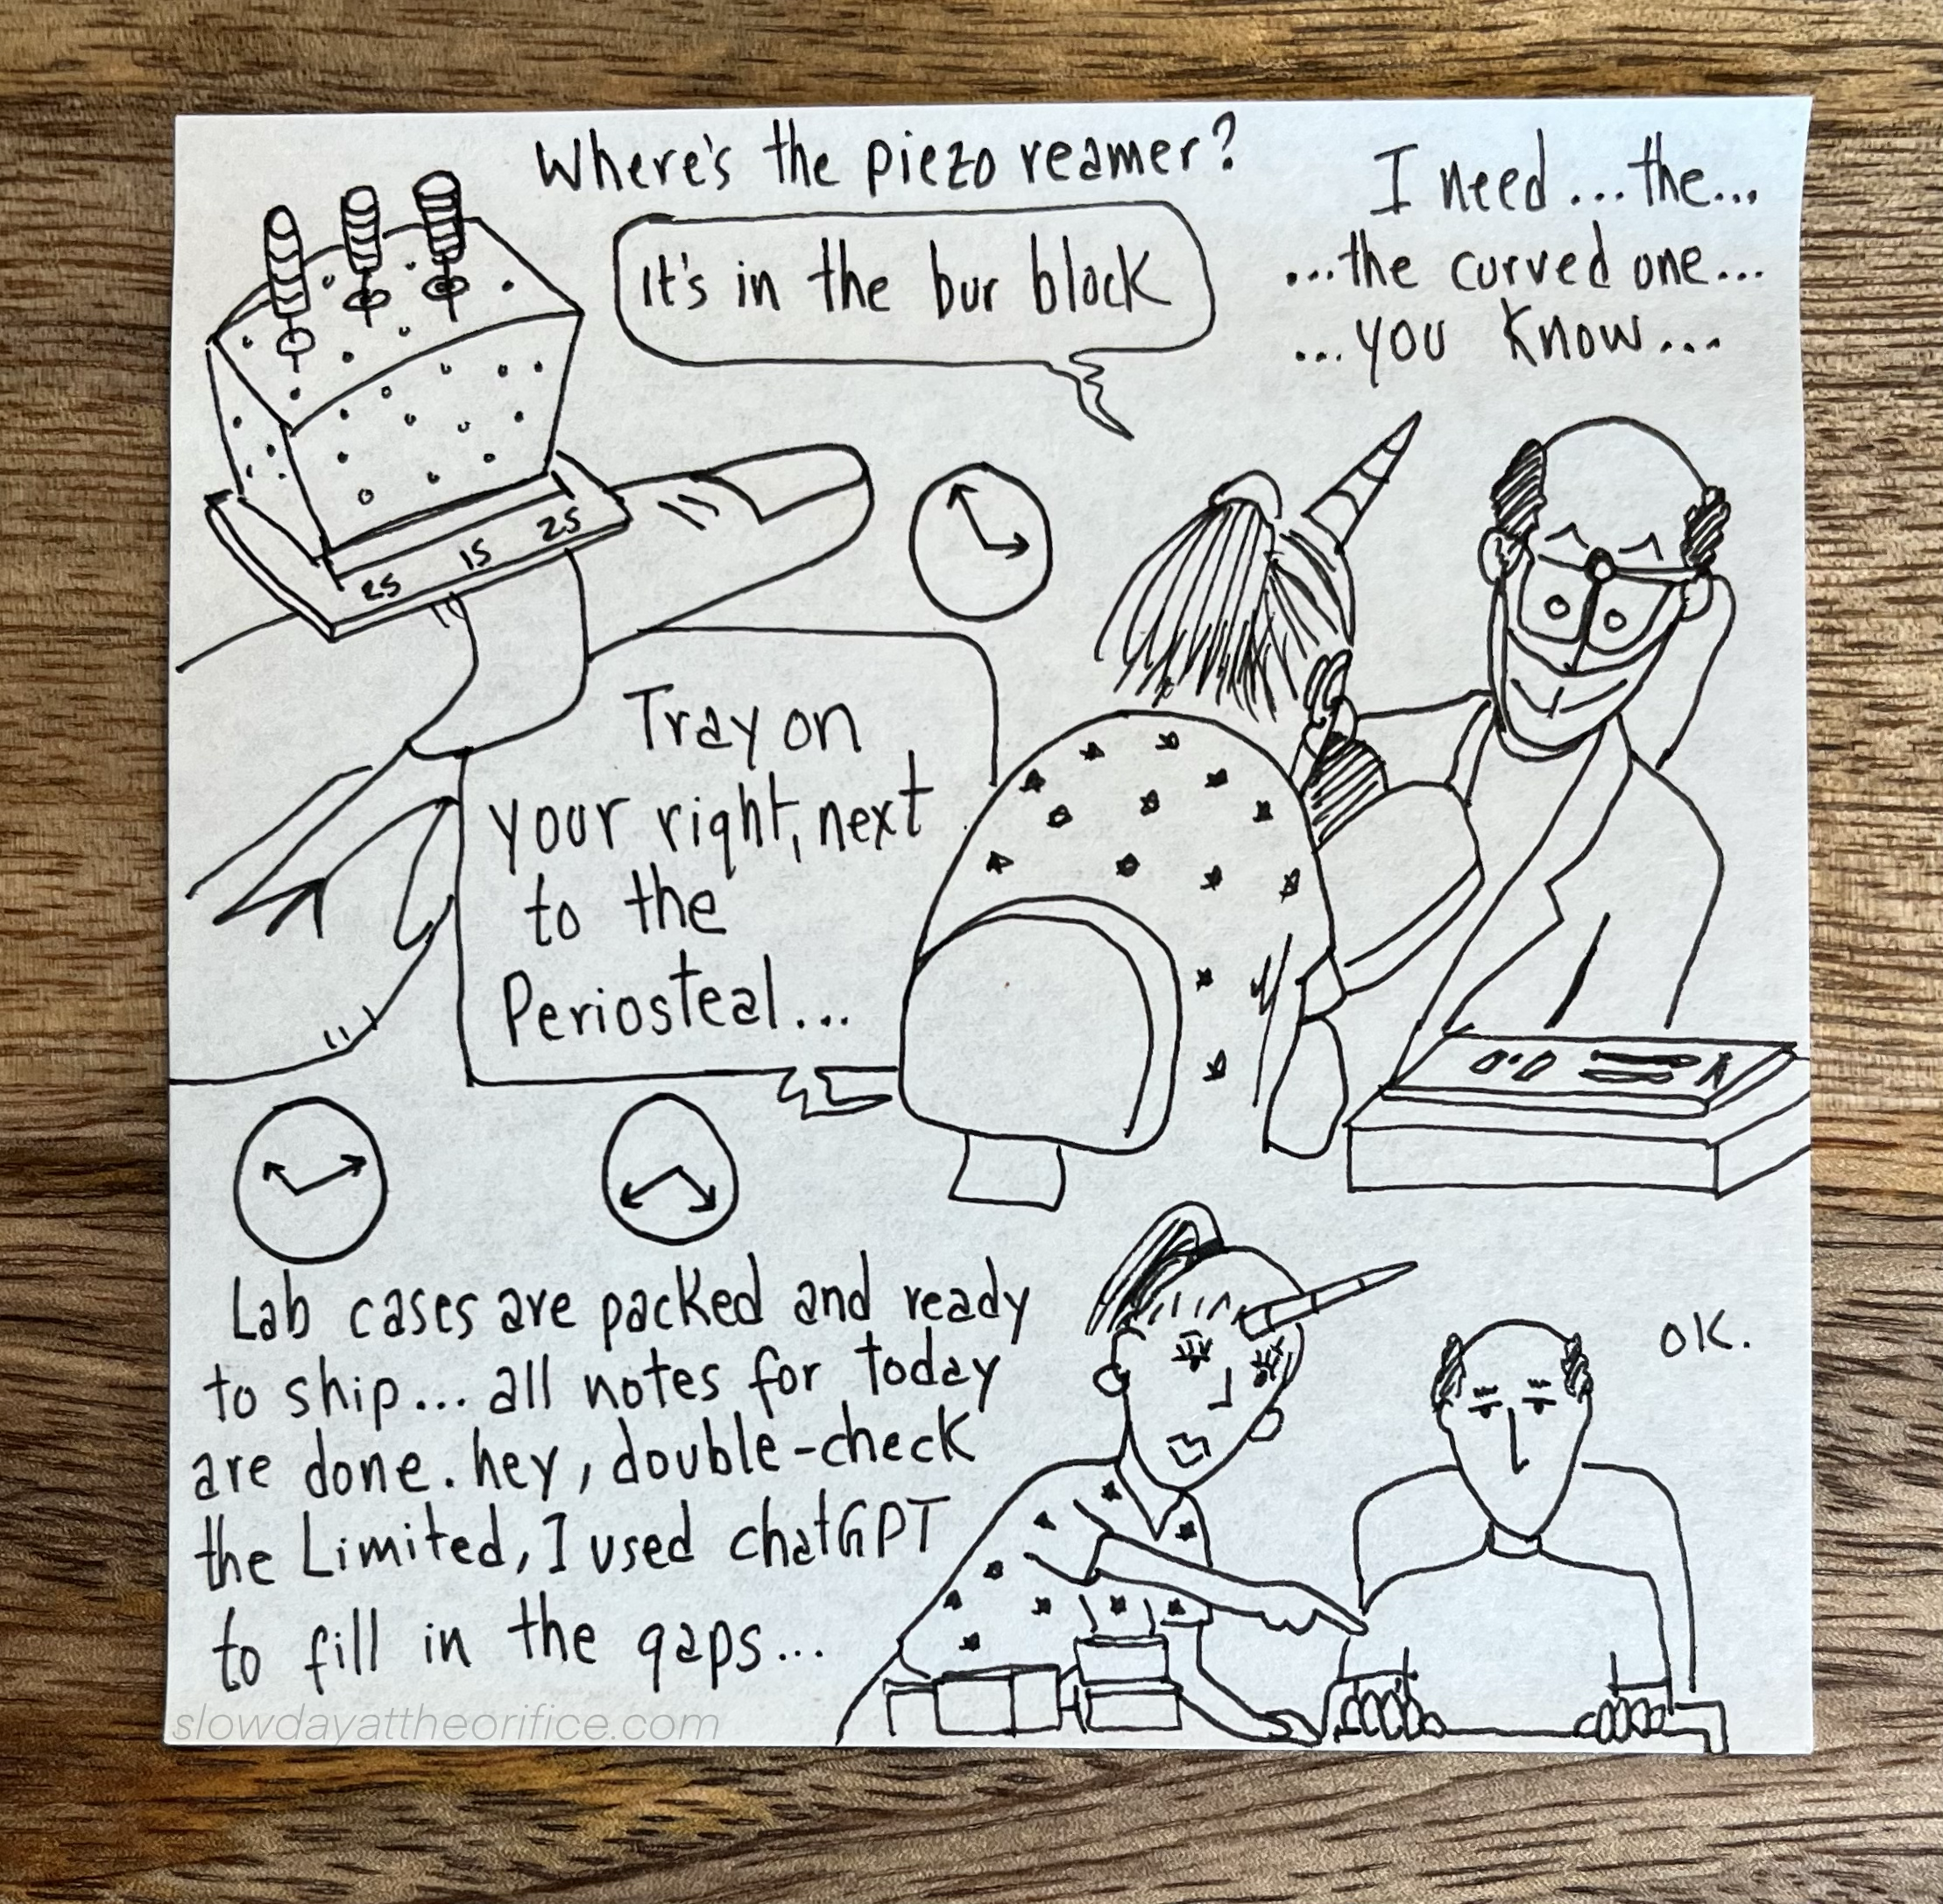 Where's the piezo reamer?
It's in the bur block
I need...the...
...the curved one...
...you know...
25 15 25
Tray on
your right, next
to the
Periosteal...
Lab cases are packed and ready
to ship... all notes for today
are done. hey, double-check
the Limited, I used chatGPT
to fill in the gaps...
OK.
slowdayattheorifice.com